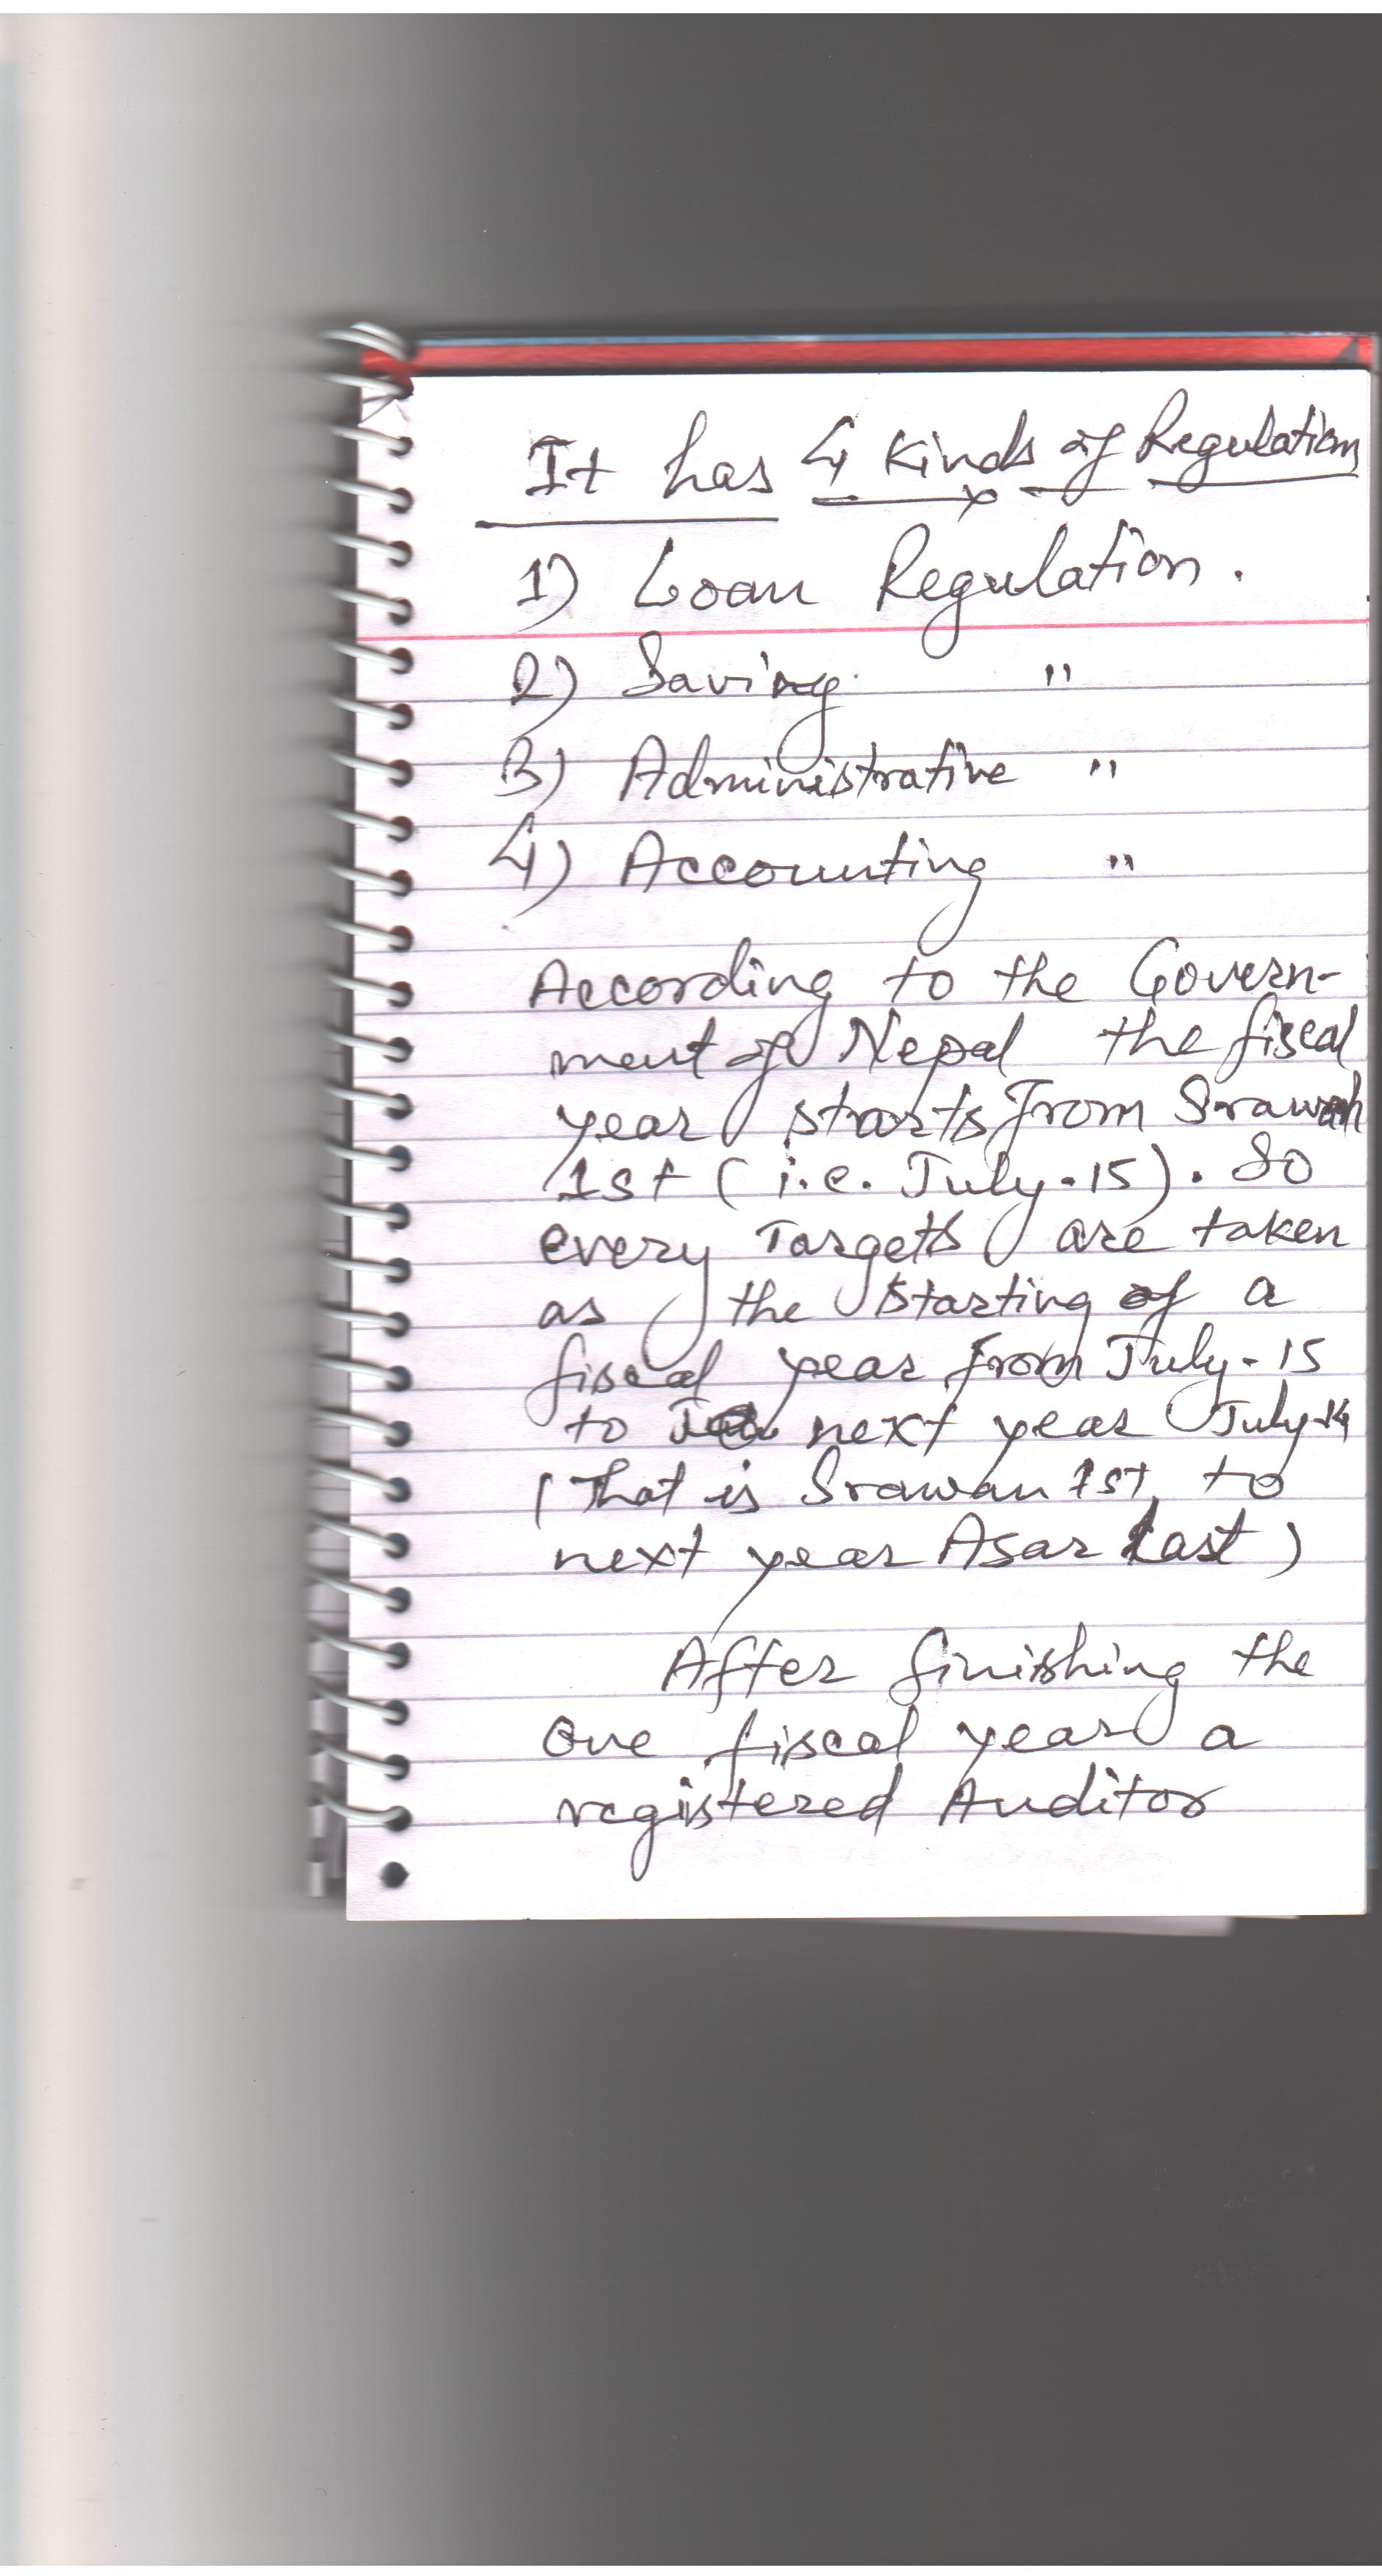 It has 4 Kinds of Regulation
1) Loan Regulation.
2) Saving "
3) Administrative "
4) Accounting "
According to the Govern-
ment of Nepal the fiscal
year starts from Srawan
1st (i.e. July-15). So
every Targets are taken
as the starting of a
fiscal year from July-15
to next year July-14
(That is Srawan 1st to
next year Asar Last)
After finishing the
one fiscal year a
registered Auditor